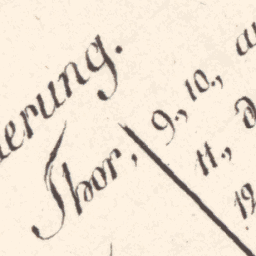 erung.
Thor, 9., 10.,
11.,
12